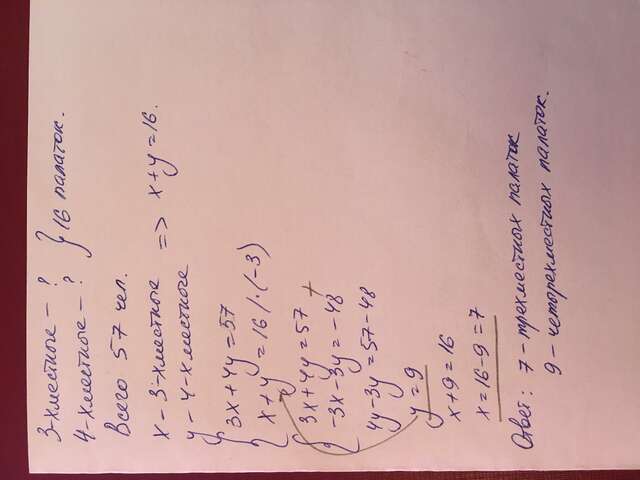 3-хместные - ?
4-хместные - ? } 16 палаток.
Всего 57 чел.
x - 3-хместные => x+y=16.
y - 4-хместные
{ 3x+4y=57
x+y=16 /·(-3)
{ 3x+4y=57 +
-3x-3y=-48
4y-3y=57-48
y=9
x+9=16
x=16-9=7
Ответ: 7 - трехместных палаток
9 - четорехместных палаток.